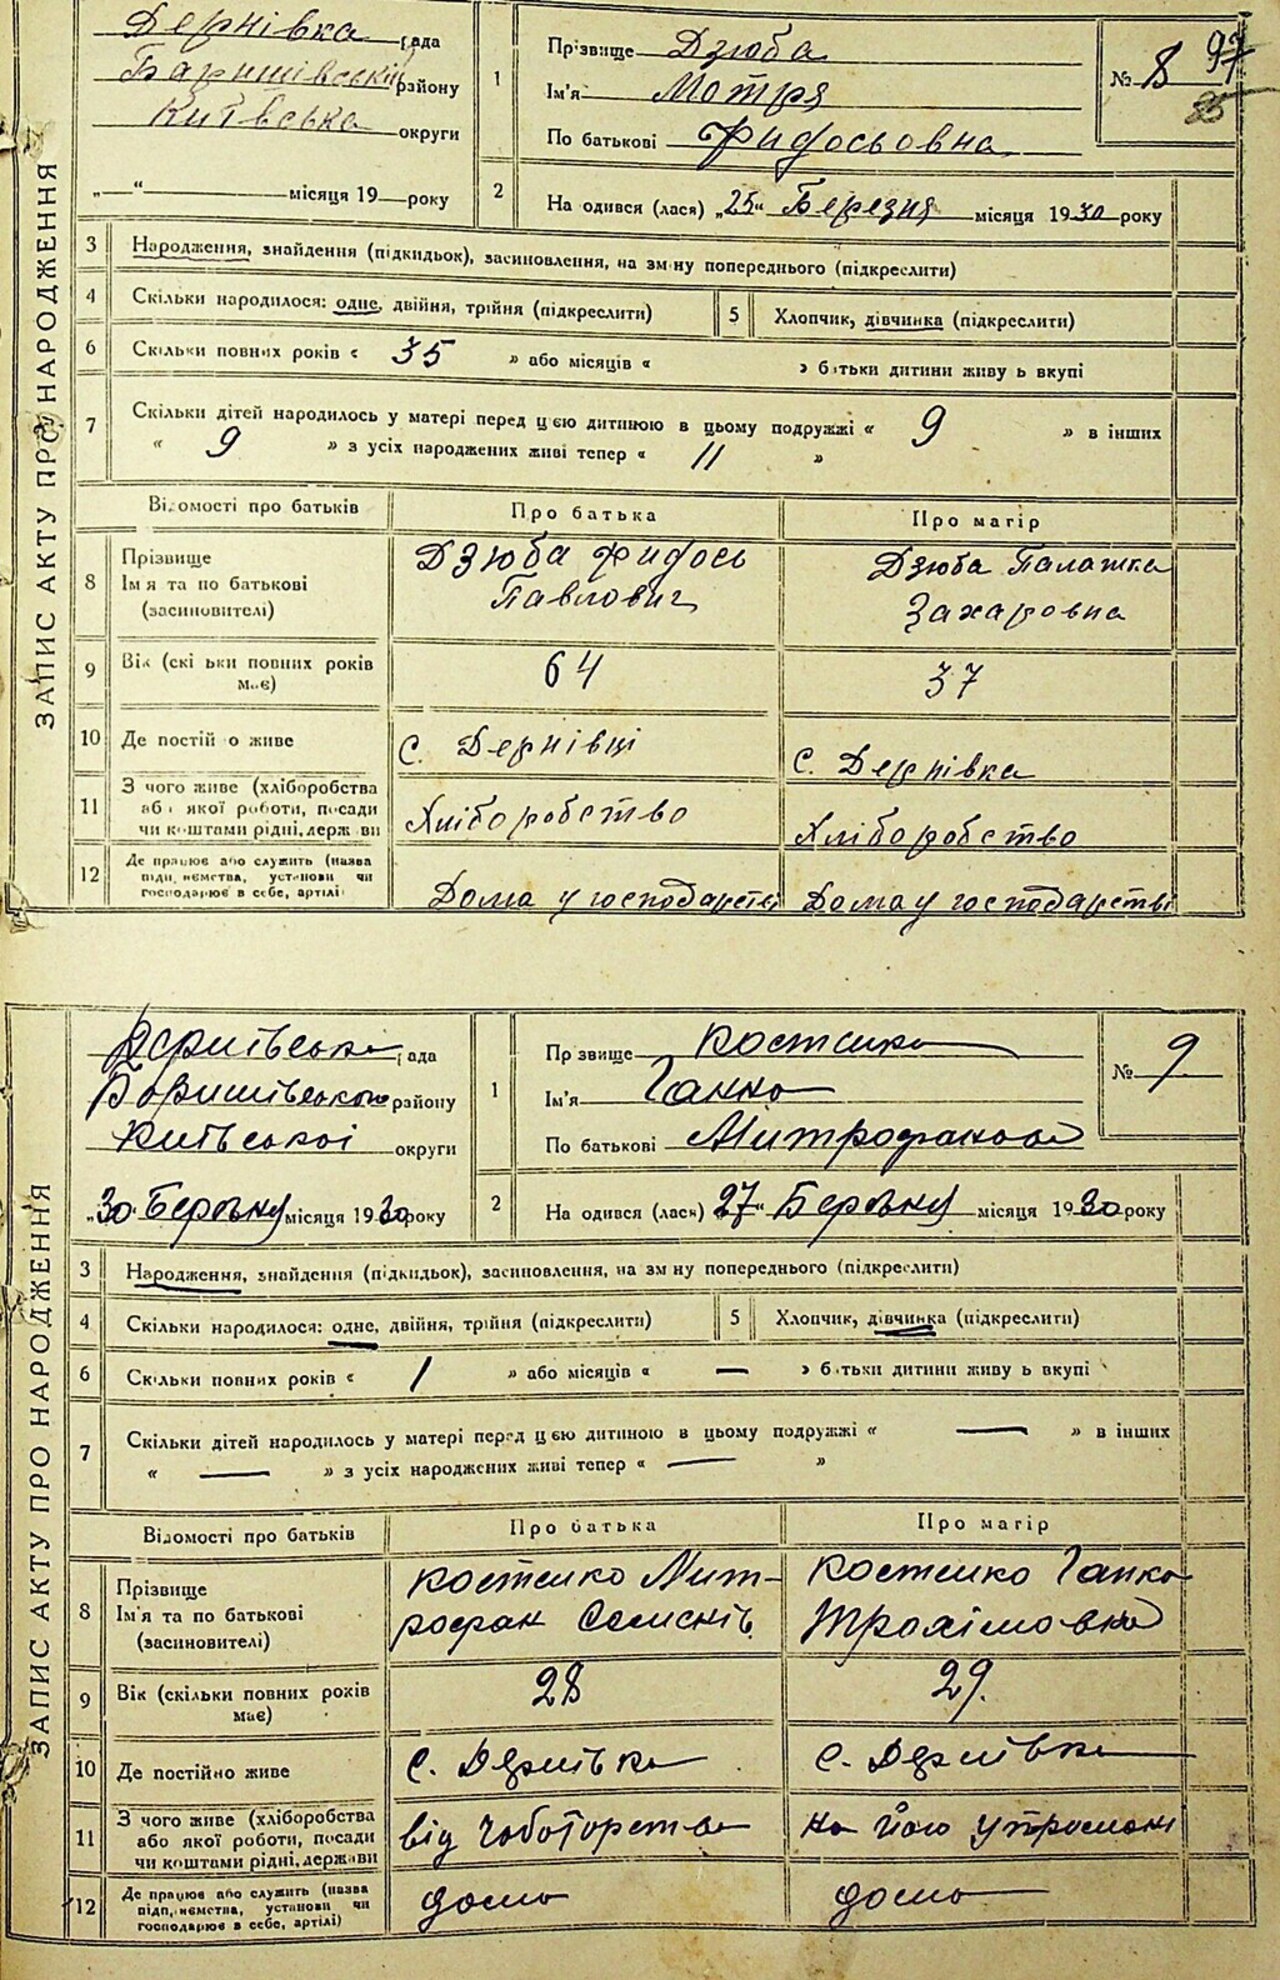 ЗАПИС АКТУ ПРО НАРОДЖЕННЯ
Дернівка рада
Баришівський району
Київська округи
„—“ — місяця 19— року
1
Прізвище Дзюба
Ім'я Мотря
По батькові Фидосьовна
№ 8 97
25
2
Народився (лася) „25“ Березня місяця 1930 року
3 Народження, знайдення (підкидьок), засиновлення, на зміну попереднього (підкреслити)
4 Скільки народилося: одне, двійня, трійня (підкреслити)
5 Хлопчик, дівчинка (підкреслити)
6 Скільки повних років « 35 » або місяців « » батьки дитини живуть вкупі
7 Скільки дітей народилось у матері перед цєю дитиною в цьому подружжі « 9 » в інших
« 9 » з усіх народжених живі тепер « 11 »
Відомості про батьків Про батька Про матір
8 Прізвище
Ім'я та по батькові
(засиновителі)
Дзюба Фидось
Павлович
Дзюба Палажка
Захаровна
9 Вік (скільки повних років
має)
64 37
10 Де постійно живе с. Дернівці с. Дернівка
11 З чого живе (хліборобства
або якої роботи, посади
чи коштами рідні, держави
Хліборобство Хліборобство
12 Де працює або служить (назва
підприємства, установи чи
господарює в себе, артілі)
Дома у господарстві Дома у господарстві
ЗАПИС АКТУ ПРО НАРОДЖЕННЯ
Дернівська рада
Баришівського району
Київської округи
„30“ Березня місяця 1930 року
1
Прізвище Костенко
Ім'я Ганна
По батькові Митрофановна
№ 9
2
Народився (лася) „27“ Березня місяця 1930 року
3 Народження, знайдення (підкидьок), засиновлення, на зміну попереднього (підкреслити)
4 Скільки народилося: одне, двійня, трійня (підкреслити)
5 Хлопчик, дівчинка (підкреслити)
6 Скільки повних років « 1 » або місяців « — » батьки дитини живуть вкупі
7 Скільки дітей народилось у матері перед цєю дитиною в цьому подружжі « — » в інших
« — » з усіх народжених живі тепер « — »
Відомості про батьків Про батька Про матір
8 Прізвище
Ім'я та по батькові
(засиновителі)
Костенко Мит-
рофан
Костенко Ганна
Трохімовна
9 Вік (скільки повних років
має)
28 29.
10 Де постійно живе с. Дернівка с. Дернівка
11 З чого живе (хліборобства
або якої роботи, посади
чи коштами рідні, держави
від чоботорства на його утриманні
12 Де працює або служить (назва
підприємства, установи чи
господарює в себе, артілі)
дома дома